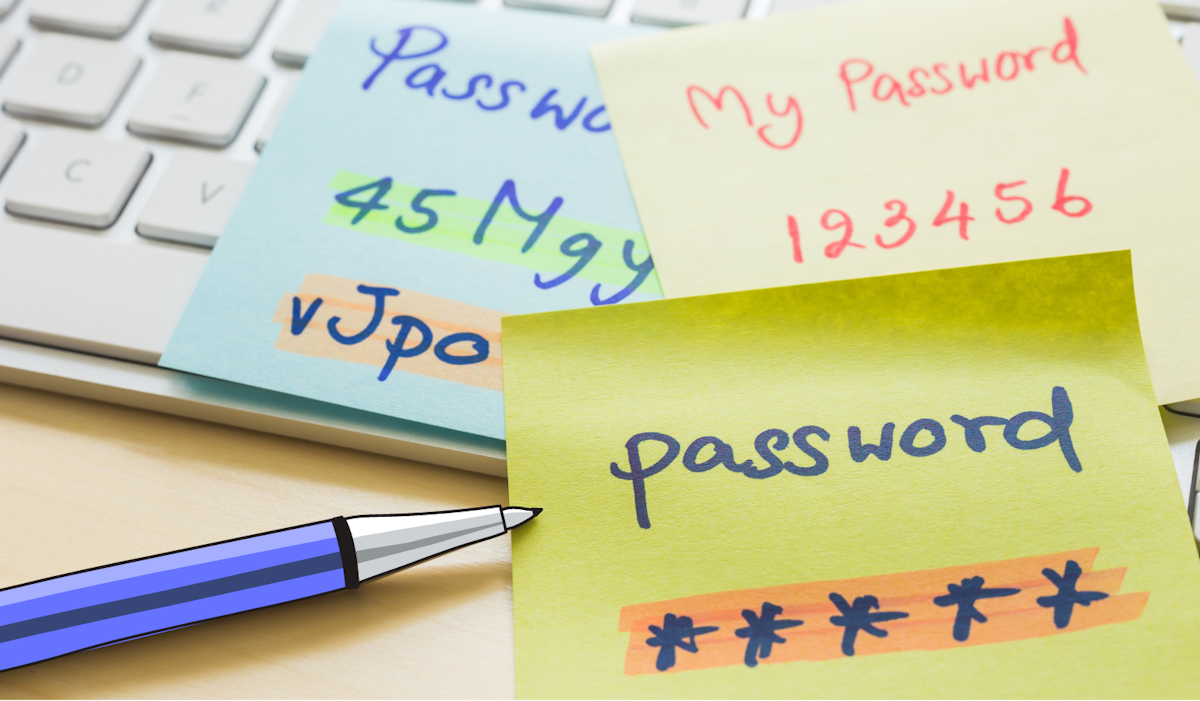 Passwo
45 Mgy
vJpo
My Password
123456
password
*****
D F
C V